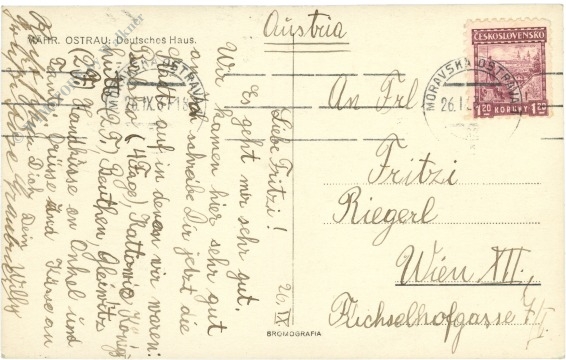 Austria
MÄHR. OSTRAU: Deutsches Haus.
ČESKOSLOVENSKO
1.20 KORUNY 1.20
MORAVSKÁ OSTRAVA
26.IX.
MORAVSKÁ OSTRAVA
26.I
An Frl.
Fritzi
Riegerl
Wien XII.
Richselhofgasse
26. IX
BROMOGRAFIA
Liebe Fritzi!
Es geht mir sehr gut.
Wir kamen hier sehr gut
an. schreibe Dir jetzt die
Städte auf in denen wir waren:
(4 Tage), Kattowic, Königs
(2 T.) Beuthen, Gleiwitz
(2 T.) Handküsse an Onkel und
Tante Grüsse und Küsse an
Dich Dein
Willy